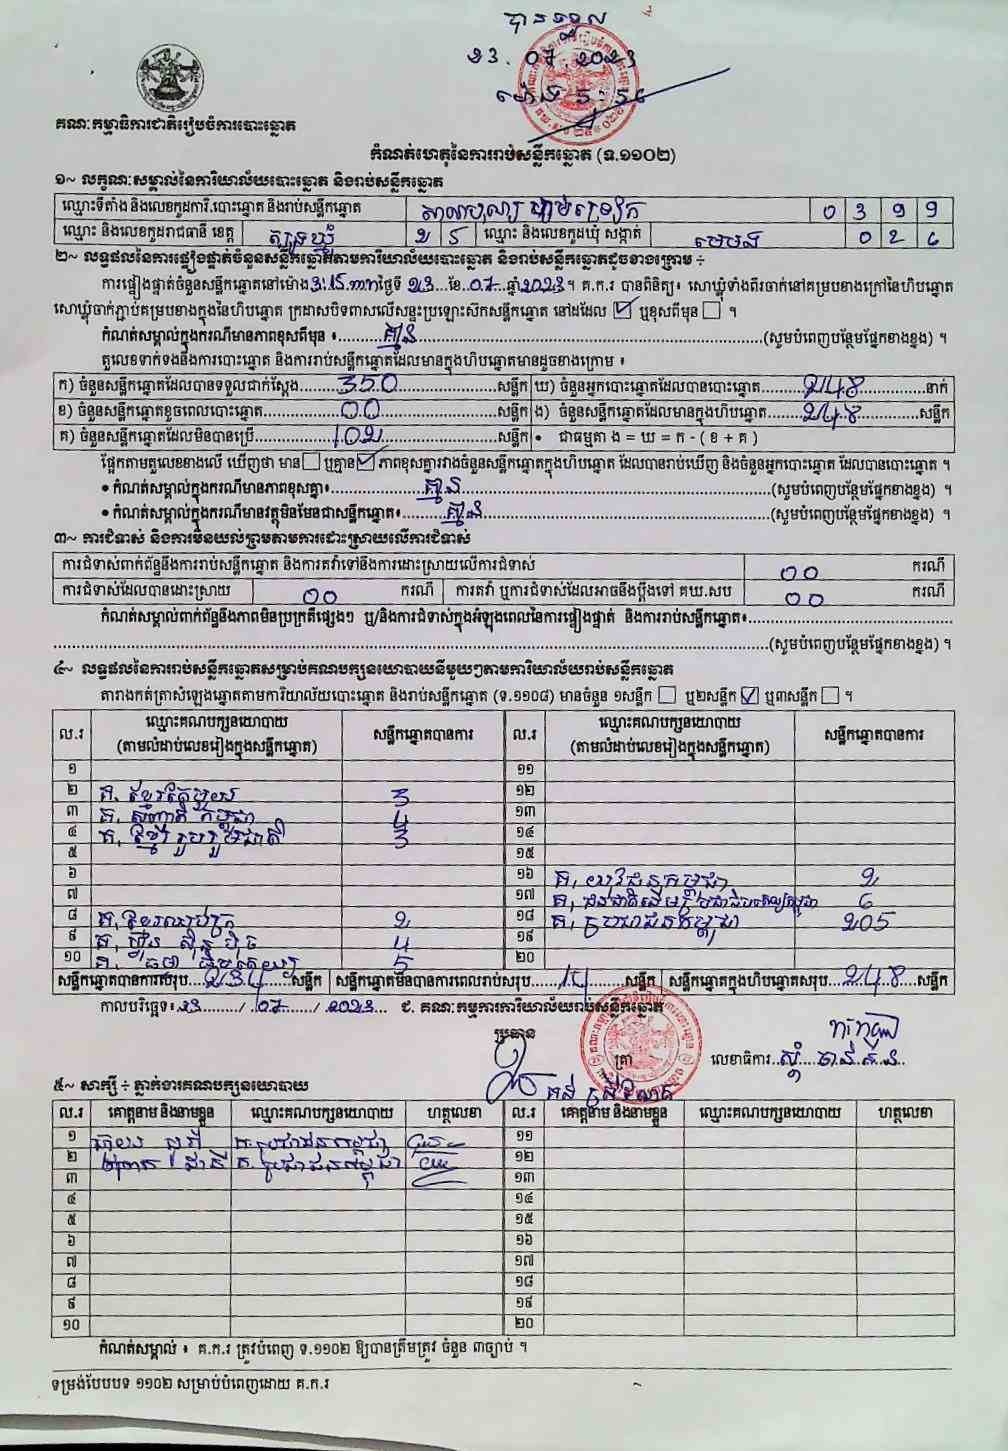 បានទទួល
23.07.2023
ម៉ោង 5:54
គណៈកម្មាធិការជាតិរៀបចំការបោះឆ្នោត
កំណត់ហេតុនៃការរាប់សន្លឹកឆ្នោត (ទ.១១០២)
១~ លក្ខណៈសម្គាល់នៃការិយាល័យបោះឆ្នោត និងរាប់សន្លឹកឆ្នោត
ឈ្មោះទីតាំង និងលេខកូដការិ.បោះឆ្នោត និងរាប់សន្លឹកឆ្នោត 0 3 9 9
ឈ្មោះ និងលេខកូដរាជធានី ខេត្ត ត្បូងឃ្មុំ 2 5 ឈ្មោះ និងលេខកូដឃុំ សង្កាត់ មេមង 0 2 6
២~ លទ្ធផលនៃការផ្ទៀងផ្ទាត់ចំនួនសន្លឹកឆ្នោតតាមការិយាល័យបោះឆ្នោត និងរាប់សន្លឹកឆ្នោតដូចខាងក្រោម ÷
ការផ្ទៀងផ្ទាត់ចំនួនសន្លឹកឆ្នោតនៅម៉ោង 3:15 នាទី ថ្ងៃទី 23 ខែ 07 ឆ្នាំ 2023។ គ.ក.រ បានពិនិត្យ៖ សោឃ្លុំទាំងពីរចាក់នៅគម្របខាងក្រៅនៃហិបឆ្នោត
សោឃ្លុំចាក់ភ្ជាប់គម្របខាងក្នុងនៃហិបឆ្នោត ក្រដាសបិទពាសលើសន្ទះប្រឡោះស៊កសន្លឹកឆ្នោត នៅដដែល ☑ ឬខុសពីមុន ☐ ។
កំណត់សម្គាល់ក្នុងករណីមានភាពខុសពីមុន ៖ គ្មាន (សូមបំពេញបន្ថែមផ្នែកខាងខ្នង) ។
តួលេខទាក់ទងនឹងការបោះឆ្នោត និងការរាប់សន្លឹកឆ្នោតដែលមានក្នុងហិបឆ្នោតមានដូចខាងក្រោម ៖
ក) ចំនួនសន្លឹកឆ្នោតដែលបានទទួលជាក់ស្តែង 350 សន្លឹក ឃ) ចំនួនអ្នកបោះឆ្នោតដែលបានបោះឆ្នោត 248 នាក់
ខ) ចំនួនសន្លឹកឆ្នោតខូចពេលបោះឆ្នោត 00 សន្លឹក ង) ចំនួនសន្លឹកឆ្នោតដែលមានក្នុងហិបឆ្នោត 248 សន្លឹក
គ) ចំនួនសន្លឹកឆ្នោតដែលមិនបានប្រើ 102 សន្លឹក • ជាធម្មតា ង = ឃ = ក - ( ខ + គ )
ផ្អែកតាមតួលេខខាងលើ ឃើញថា មាន ☐ ឬគ្មាន ☑ ភាពខុសគ្នារវាងចំនួនសន្លឹកឆ្នោតក្នុងហិបឆ្នោត ដែលបានរាប់ឃើញ និងចំនួនអ្នកបោះឆ្នោត ដែលបានបោះឆ្នោត ។
• កំណត់សម្គាល់ក្នុងករណីមានភាពខុសគ្នា៖ គ្មាន (សូមបំពេញបន្ថែមផ្នែកខាងខ្នង) ។
• កំណត់សម្គាល់ក្នុងករណីមានវត្ថុមិនមែនជាសន្លឹកឆ្នោត៖ គ្មាន (សូមបំពេញបន្ថែមផ្នែកខាងខ្នង) ។
៣~ ការជំទាស់ និងការមិនយល់ព្រមតាមការដោះស្រាយលើការជំទាស់
ការជំទាស់ពាក់ព័ន្ធនឹងការរាប់សន្លឹកឆ្នោត និងការតវ៉ាទៅនឹងការដោះស្រាយលើការជំទាស់ 00 ករណី
ការជំទាស់ដែលបានដោះស្រាយ 00 ករណី ការតវ៉ា ឬការជំទាស់ដែលអាចនឹងប្តឹងទៅ គឃ.សប 00 ករណី
កំណត់សម្គាល់ពាក់ព័ន្ធនឹងភាពមិនប្រក្រតីផ្សេងៗ ឬ/និងការជំទាស់ក្នុងអំឡុងពេលនៃការផ្ទៀងផ្ទាត់ និងការរាប់សន្លឹកឆ្នោត៖
(សូមបំពេញបន្ថែមផ្នែកខាងខ្នង) ។
៤~ លទ្ធផលនៃការរាប់សន្លឹកឆ្នោតសម្រាប់គណបក្សនយោបាយនីមួយៗតាមការិយាល័យរាប់សន្លឹកឆ្នោត
តារាងកត់ត្រាសំឡេងឆ្នោតតាមការិយាល័យបោះឆ្នោត និងរាប់សន្លឹកឆ្នោត (ទ.១១០៨) មានចំនួន ១សន្លឹក ☐ ឬ២សន្លឹក ☑ ឬ៣សន្លឹក ☐ ។
ល.រ ឈ្មោះគណបក្សនយោបាយ (តាមលំដាប់លេខរៀងក្នុងសន្លឹកឆ្នោត) សន្លឹកឆ្នោតបានការ ល.រ ឈ្មោះគណបក្សនយោបាយ (តាមលំដាប់លេខរៀងក្នុងសន្លឹកឆ្នោត) សន្លឹកឆ្នោតបានការ
១ ១១
២ គ. ខ្មែរតែមួយ 3 ១២
៣ គ. សញ្ជាតិកម្ពុជា 4 ១៣
៤ គ. ខ្មែររួបរួមជាតិ 3 ១៤
៥ ១៥
៦ ១៦ គ. យុវជនកម្ពុជា 2
៧ ១៧ គ. ជនជាតិដើមប្រជាធិបតេយ្យកម្ពុជា 6
៨ គ. ខ្មែរឈប់ក្រ 2 ១៨ គ. ប្រជាជនកម្ពុជា 205
៩ គ. ហ្វ៊ុនស៊ិនប៉ិច 4 ១៩
១០ គ. ធម្មាធិបតេយ្យ 5 ២០
សន្លឹកឆ្នោតបានការសរុប 234 សន្លឹក សន្លឹកឆ្នោតមិនបានការពេលរាប់សរុប 14 សន្លឹក សន្លឹកឆ្នោតក្នុងហិបឆ្នោតសរុប 248 សន្លឹក
កាលបរិច្ឆេទ៖ 23 / 07 / 2023 ជ. គណៈកម្មការការិយាល័យរាប់សន្លឹកឆ្នោត
ប្រធាន
ត្រា លេខាធិការ
៥~ សាក្សី ÷ ភ្នាក់ងារគណបក្សនយោបាយ
ល.រ គោត្តនាម និងនាមខ្លួន ឈ្មោះគណបក្សនយោបាយ ហត្ថលេខា ល.រ គោត្តនាម និងនាមខ្លួន ឈ្មោះគណបក្សនយោបាយ ហត្ថលេខា
១ គ. ប្រជាជនកម្ពុជា ១១
២ គ. ប្រជាជនកម្ពុជា ១២
៣ ១៣
៤ ១៤
៥ ១៥
៦ ១៦
៧ ១៧
៨ ១៨
៩ ១៩
១០ ២០
កំណត់សម្គាល់ ៖ គ.ក.រ ត្រូវបំពេញ ទ.១១០២ ឱ្យបានត្រឹមត្រូវ ចំនួន ៣ច្បាប់ ។
ទម្រង់បែបបទ ១១០២ សម្រាប់បំពេញដោយ គ.ក.រ